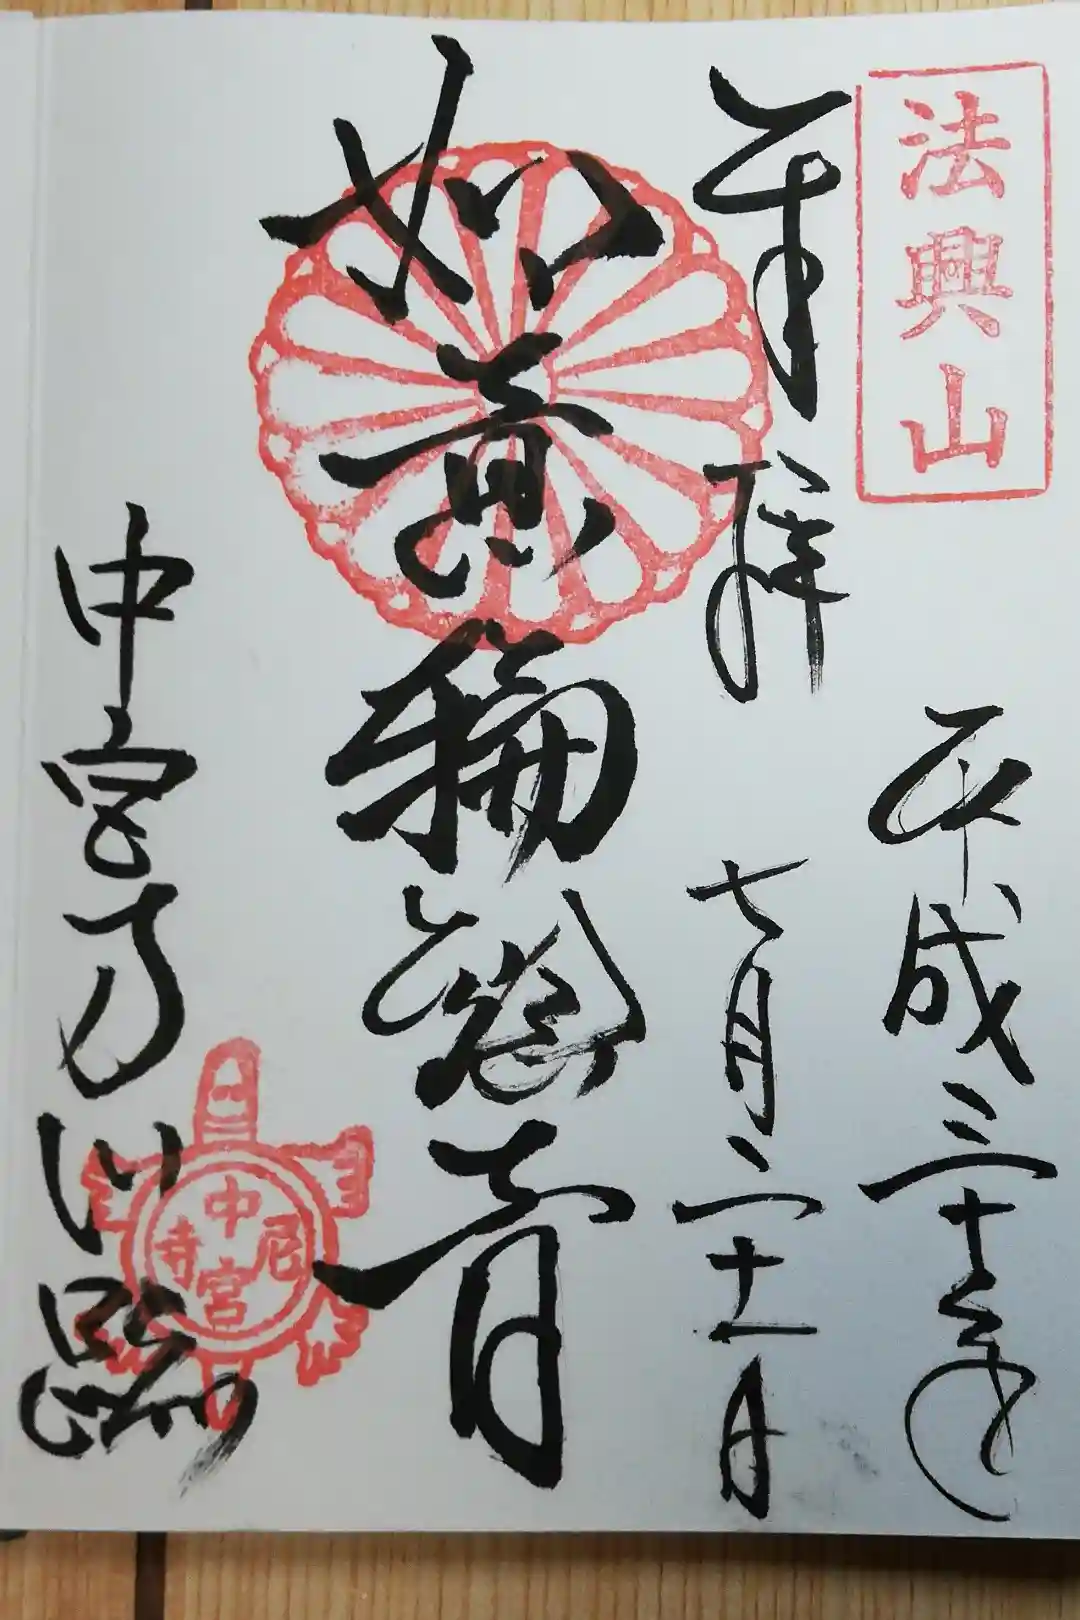 法興山
奉拝
平成三十年
七月二十一日
如意輪観音
中宮寺門跡
中宮尼寺